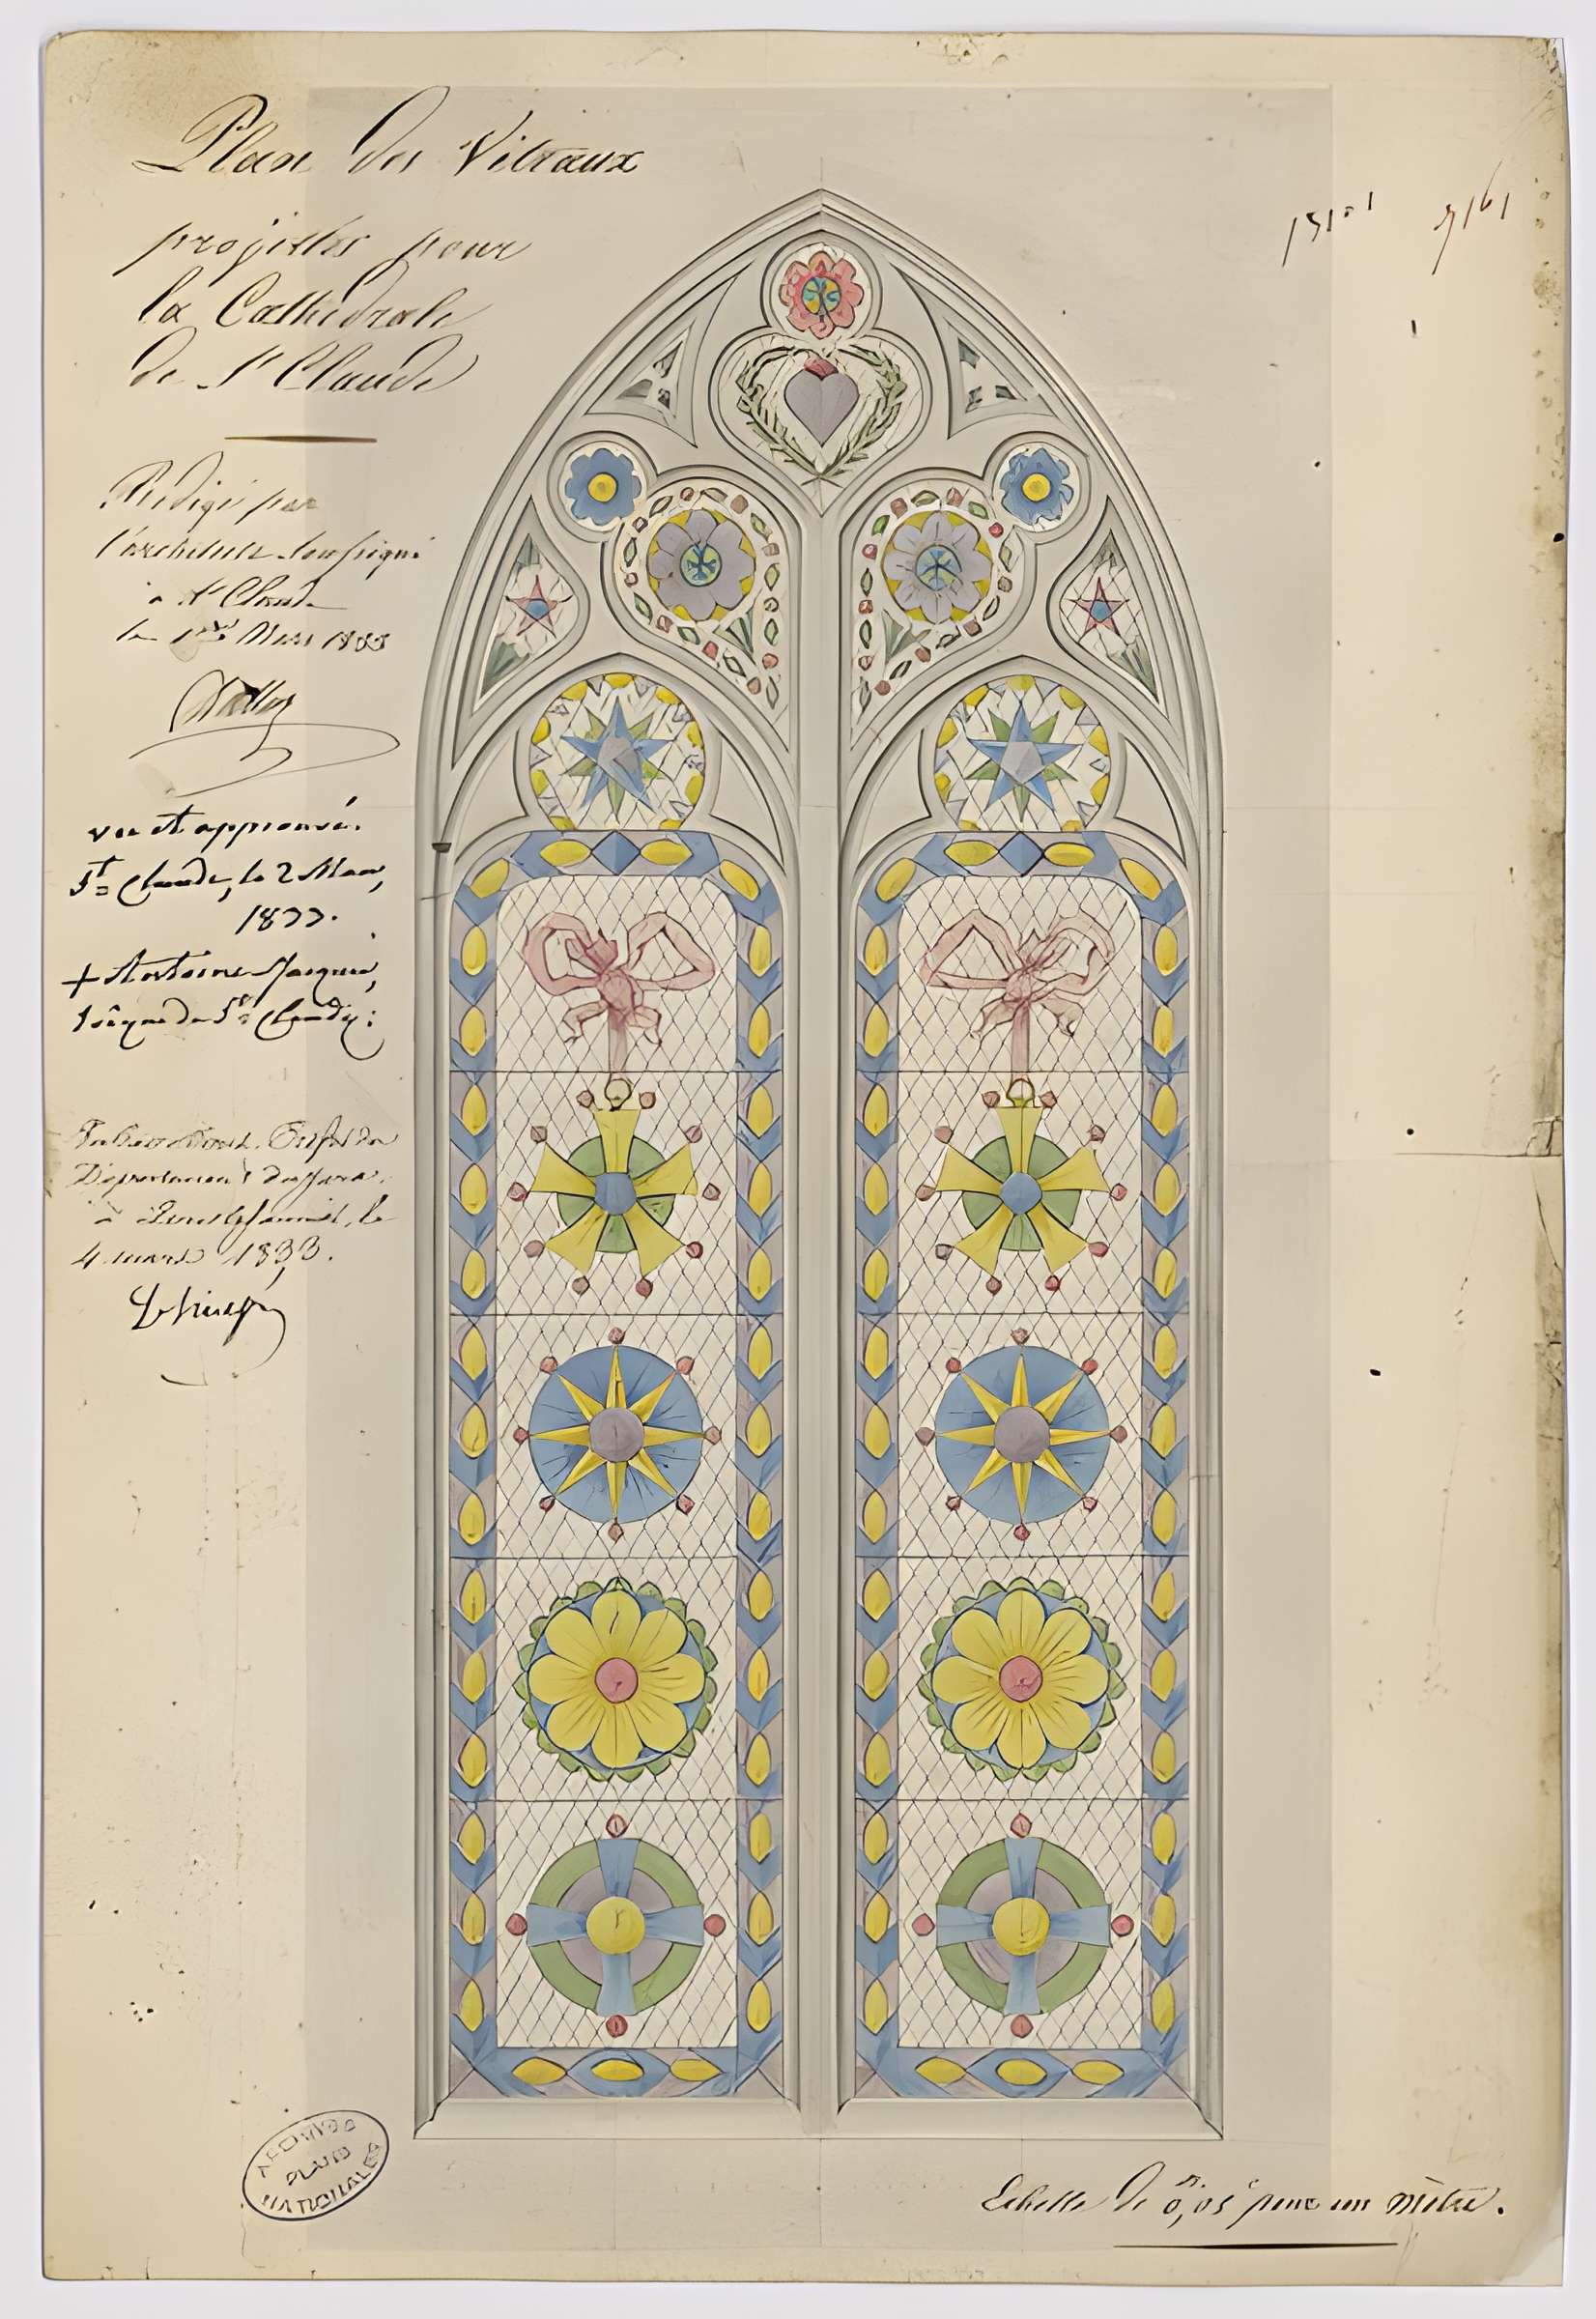 Plan des Vitraux
projettés pour
la Cathédrale
de St Claude
Rédigé par
l'architecte soussigné
à St Claude
le 1er Mars 1833
vu et approuvé.
St Claude, le 2 Mars,
1833.
+ Antoine Jacques,
Évêque de St Claude:
Département du Jura,
à Lons le Saunier, le
4 mars 1833.
ARCHIVES
PLANS
NATIONALES
Echelle de 0,05 pour un mètre.